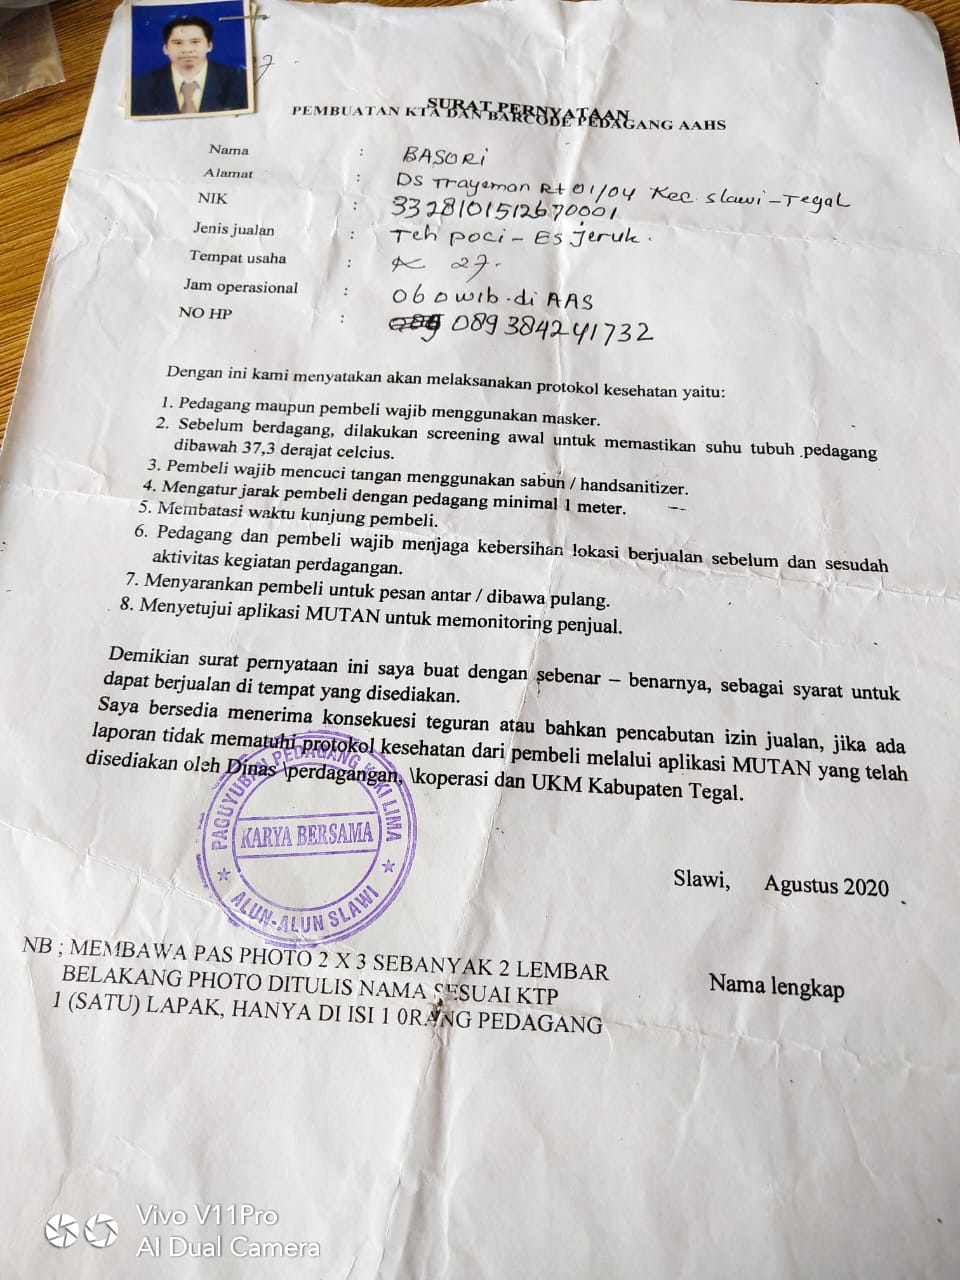 SURAT PERNYATAAN
PEMBUATAN KTA DAN BARCODE PEDAGANG AAHS
Nama : BASORI
Alamat : DS Trayeman Rt 01/04 Kec. Slawi - Tegal
NIK : 3328101512670001
Jenis jualan : Teh poci - Es Jeruk.
Tempat usaha : 27.
Jam operasional : 060 wib. di AAS
NO HP : 089384241732
Dengan ini kami menyatakan akan melaksanakan protokol kesehatan yaitu:
1. Pedagang maupun pembeli wajib menggunakan masker.
2. Sebelum berdagang, dilakukan screening awal untuk memastikan suhu tubuh pedagang
dibawah 37,3 derajat celcius.
3. Pembeli wajib mencuci tangan menggunakan sabun / handsanitizer.
4. Mengatur jarak pembeli dengan pedagang minimal 1 meter.
5. Membatasi waktu kunjung pembeli.
6. Pedagang dan pembeli wajib menjaga kebersihan lokasi berjualan sebelum dan sesudah
aktivitas kegiatan perdagangan.
7. Menyarankan pembeli untuk pesan antar / dibawa pulang.
8. Menyetujui aplikasi MUTAN untuk memonitoring penjual.
Demikian surat pernyataan ini saya buat dengan sebenar – benarnya, sebagai syarat untuk
dapat berjualan di tempat yang disediakan.
Saya bersedia menerima konsekuesi teguran atau bahkan pencabutan izin jualan, jika ada
laporan tidak mematuhi protokol kesehatan dari pembeli melalui aplikasi MUTAN yang telah
disediakan oleh Dinas \perdagangan, \koperasi dan UKM Kabupaten Tegal.
PAGUYUBAN PEDAGANG KAKI LIMA
KARYA BERSAMA
ALUN-ALUN SLAWI
Slawi, Agustus 2020
NB ; MEMBAWA PAS PHOTO 2 X 3 SEBANYAK 2 LEMBAR
BELAKANG PHOTO DITULIS NAMA SESUAI KTP
1 (SATU) LAPAK, HANYA DI ISI 1 0RANG PEDAGANG
Nama lengkap
Vivo V11Pro
AI Dual Camera